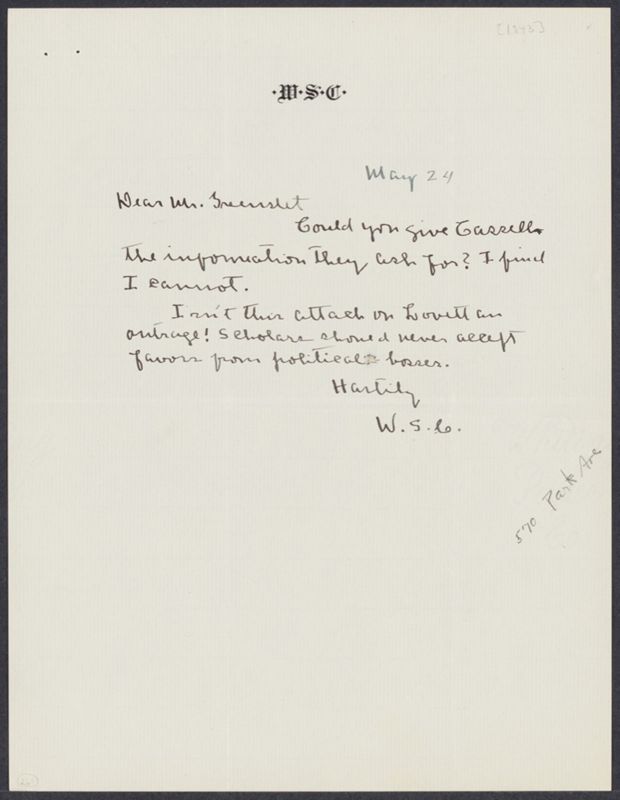 [1943]
·W·S·C·
May 24
Dear Mr. Greenslet
Could you give Cassells
the information they ask for? I find
I cannot.
Isn't this attack on Lovett an
outrage! Scholars should never accept
favors from political bosses.
Hastily
W. S. C.
570 Park Ave